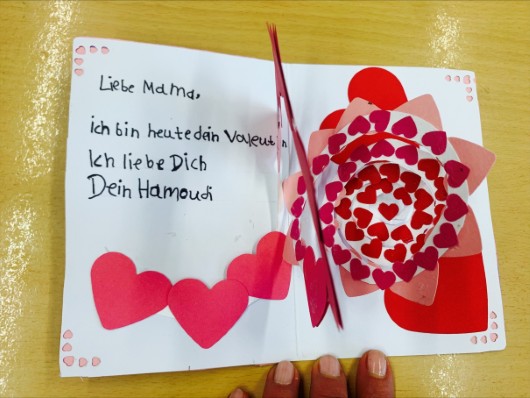 Liebe Mama,
ich bin heute dein Valentin
Ich liebe Dich
Dein Hamoudi